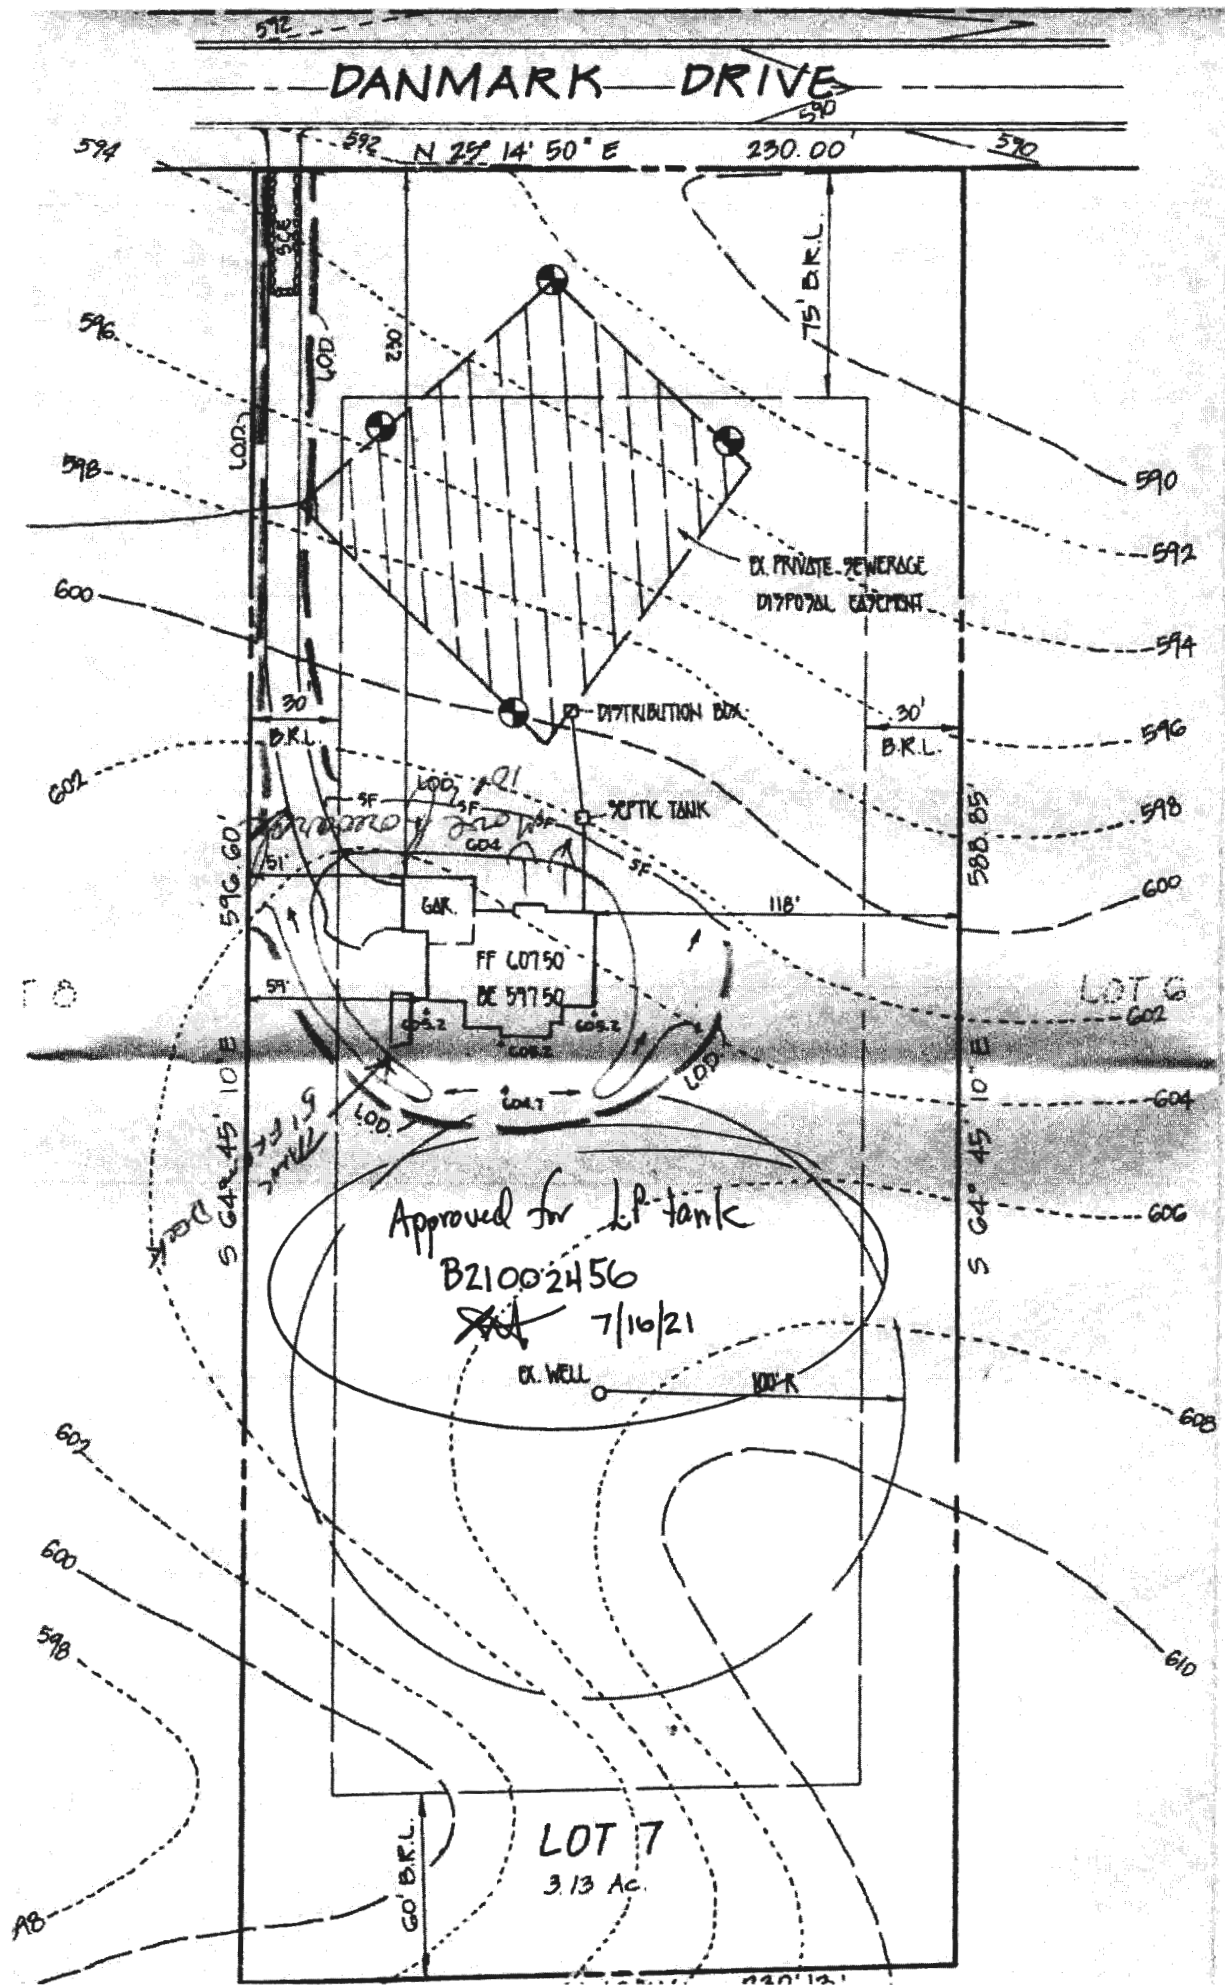 592
DANMARK DRIVE
590
594
592
N 25° 14' 50" E
230.00'
590
SCE
L.O.D.
75' B.R.L.
596
230'
L.O.D.
598
590
592
EX. PRIVATE SEWERAGE
DISPOSAL EASEMENT
600
594
30'
B.R.L.
DISTRIBUTION BOX
30'
B.R.L.
596
602
L.O.D.
12'
SF
SF
SF
SEPTIC TANK
598
Move forward
604
SF
596.60'
588.85'
51'
600
GAR.
118'
FF 607.50
BE 597.50
59'
LOT 6
605.2
605.2
602
605.2
L.O.D.
604.7
604
L.O.D.
5' ft
Deck
S 64° 45' 10" E
S 64° 45' 10" E
606
Approved for LP tank
B21002456
7/16/21
EX. WELL
100' R
608
602
600
598
610
LOT 7
3.13 Ac.
60' B.R.L.
230.13'